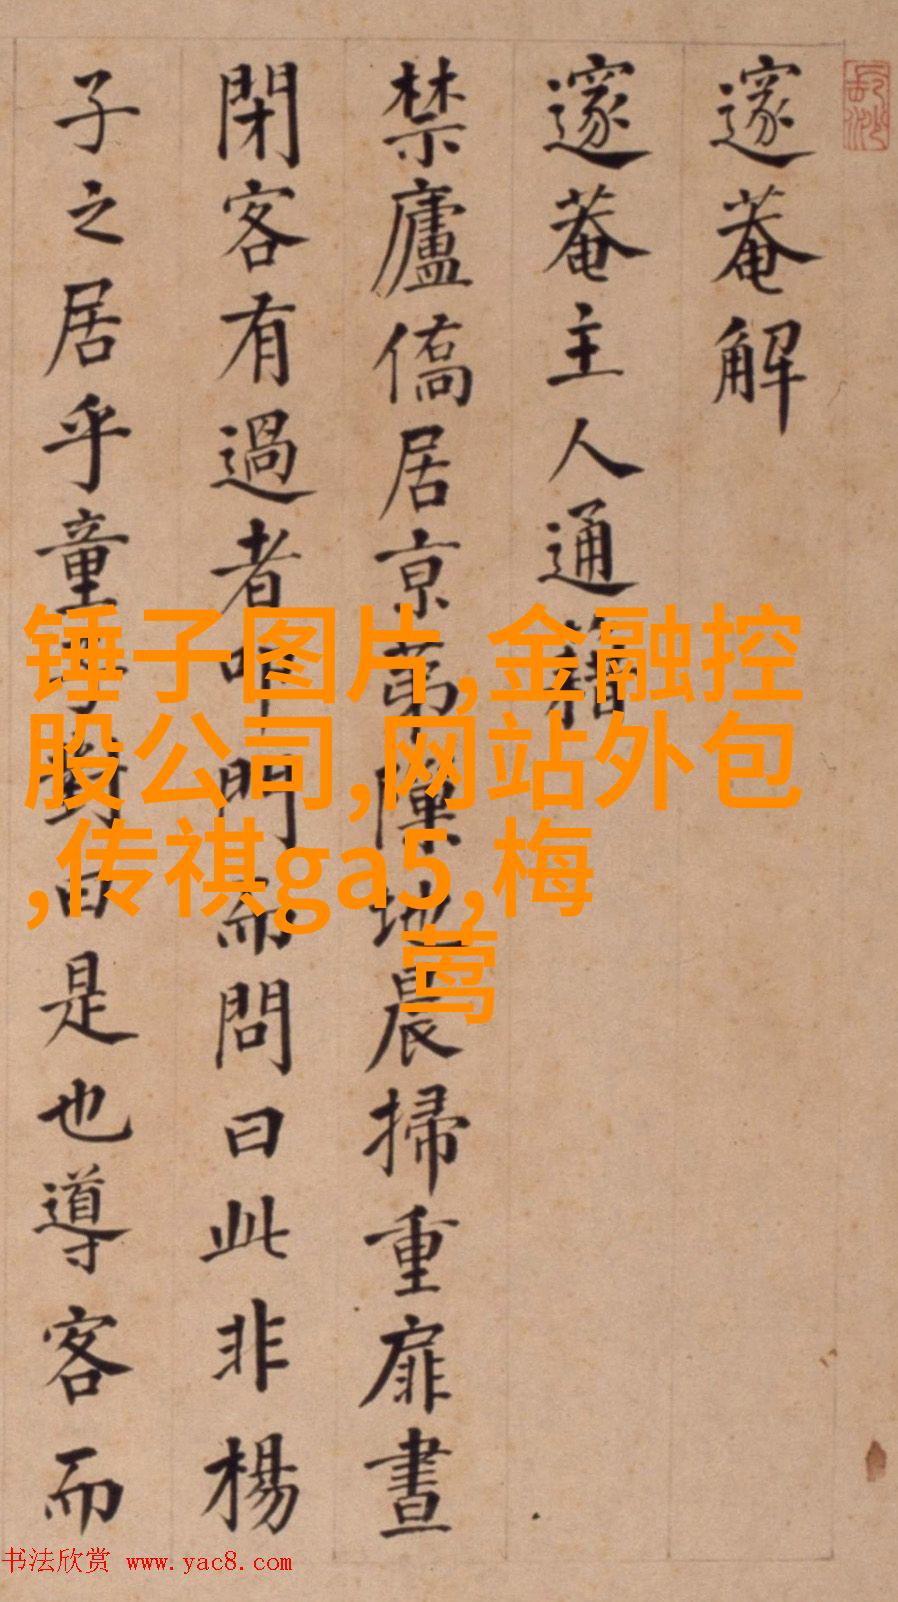 邃菴解
邃菴主人通籍
禁廬僑居京苐地晨掃重扉晝
閉客有過者叩門而問曰此非楊
子之居乎童子對曰是也導客而
锤子图片,金融控
股公司,网站外包
,传祺ga5,梅
莺
书法欣赏 www.yac8.com